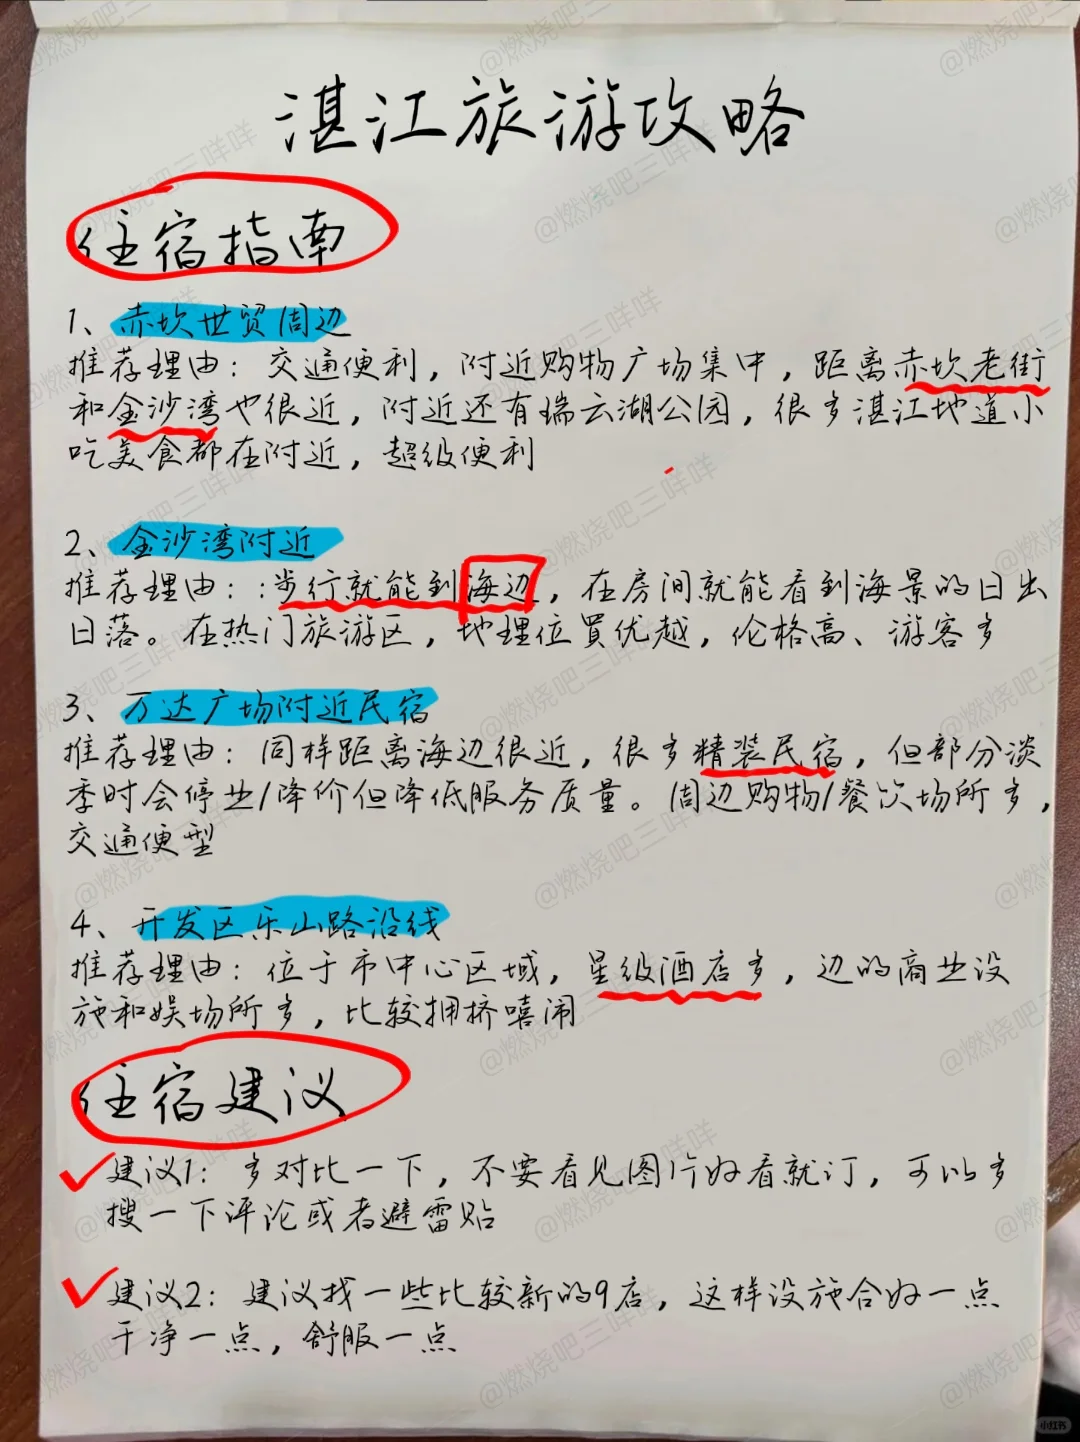 湛江旅游攻略
住宿指南
1、赤坎世贸周边
推荐理由：交通便利，附近购物广场集中，距离赤坎老街
和金沙湾也很近，附近还有瑞云湖公园，很多湛江地道小
吃美食都在附近，超级便利
2、金沙湾附近
推荐理由：:步行就能到海边，在房间就能看到海景的日出
日落。在热门旅游区，地理位置优越，伦格高、游客多
3、万达广场附近民宿
推荐理由：同样距离海边很近，很多精装民宿，但部分淡
季时会停业/降价但降低服务质量。周边购物/餐饮场所多，
交通便型
4、开发区乐山路沿线
推荐理由：位于市中心区域，星级酒店多，边的商业设
施和娱场所多，比较拥挤嘻闹
住宿建议
建议1：多对比一下，不要看见图片好看就订，可以多
搜一下评论或者避雷贴
建议2：建议找一些比较新的9店，这样设施合好一点
干净一点，舒服一点
@燃烧吧三咩咩
小红书